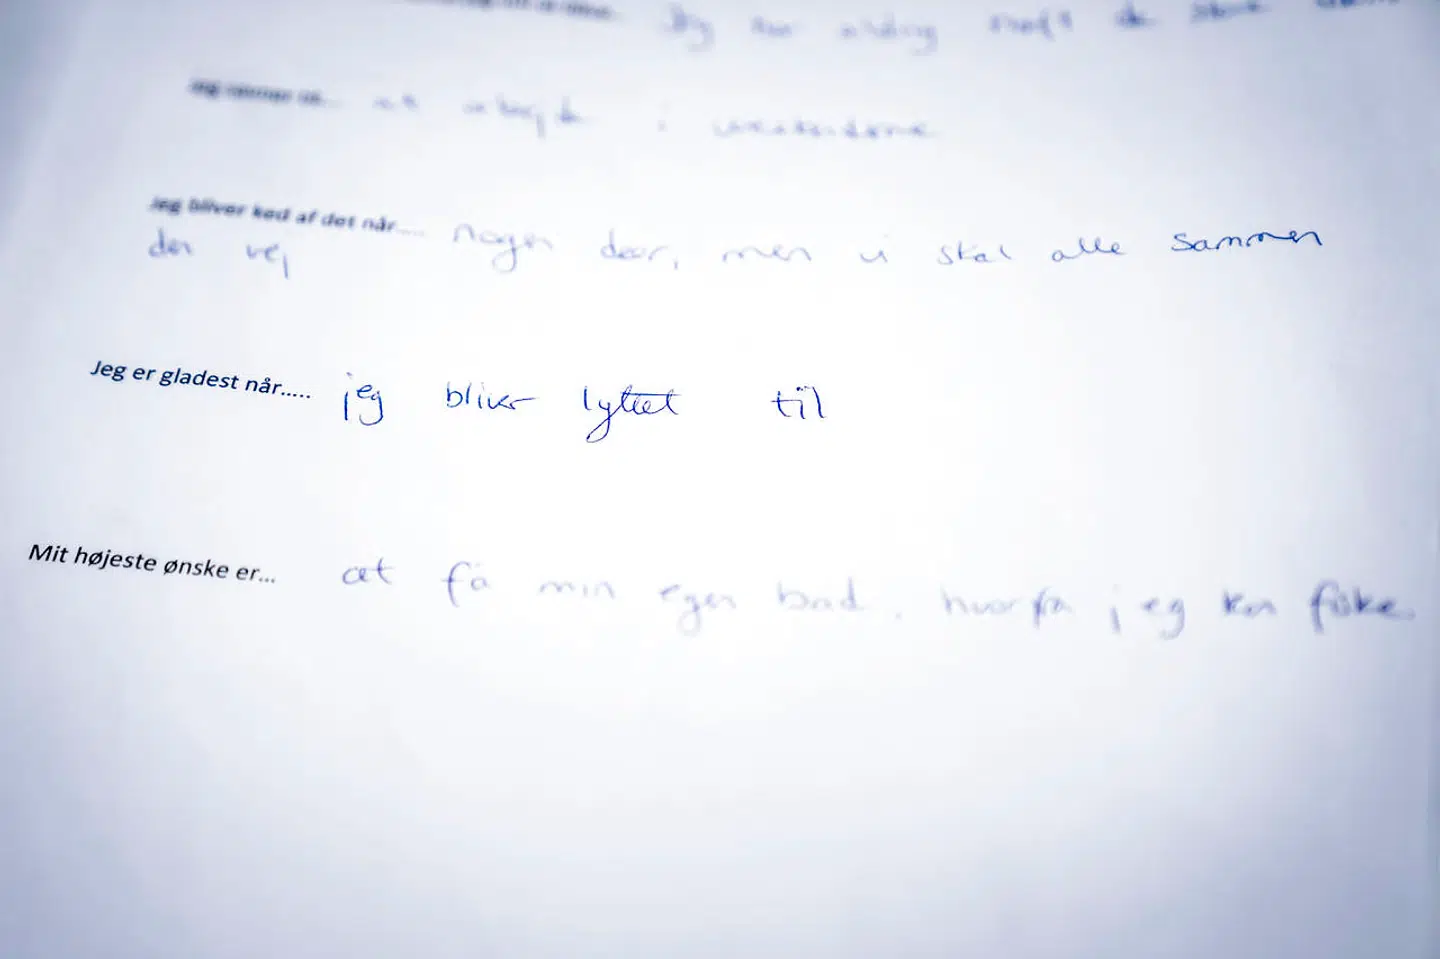 Jeg har aldrig haft de store
Jeg savner at... at arbejde i weekenderne
Jeg bliver ked af det når..... nogen dør, men vi skal alle sammen
den vej
Jeg er gladest når..... jeg bliver lyttet til
Mit højeste ønske er... at få min egen båd, hvorfra jeg kan fiske